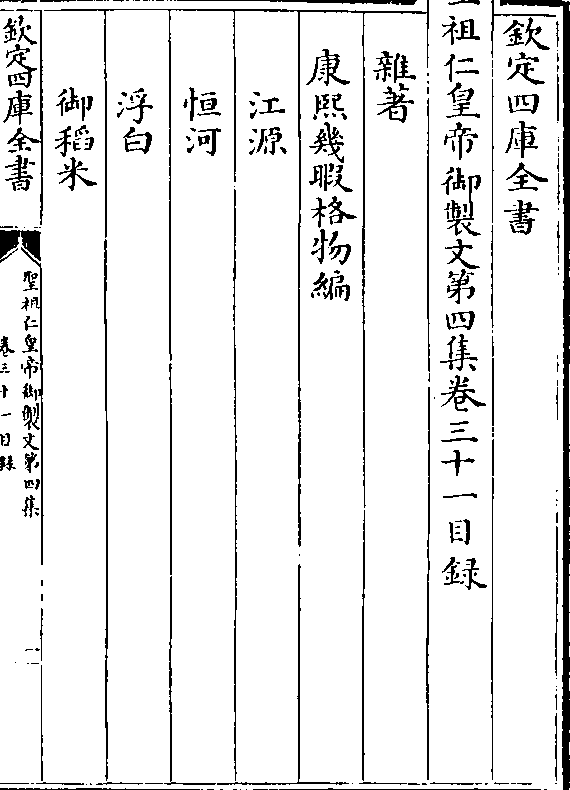 欽定四庫全書
祖仁皇帝御製文第四集卷三十一目録
雜著
康熙幾暇格物編
江源
恒河
浮白
御稻米
欽定四庫全書
聖祖仁皇帝御製文第四集
卷三十一目録
一